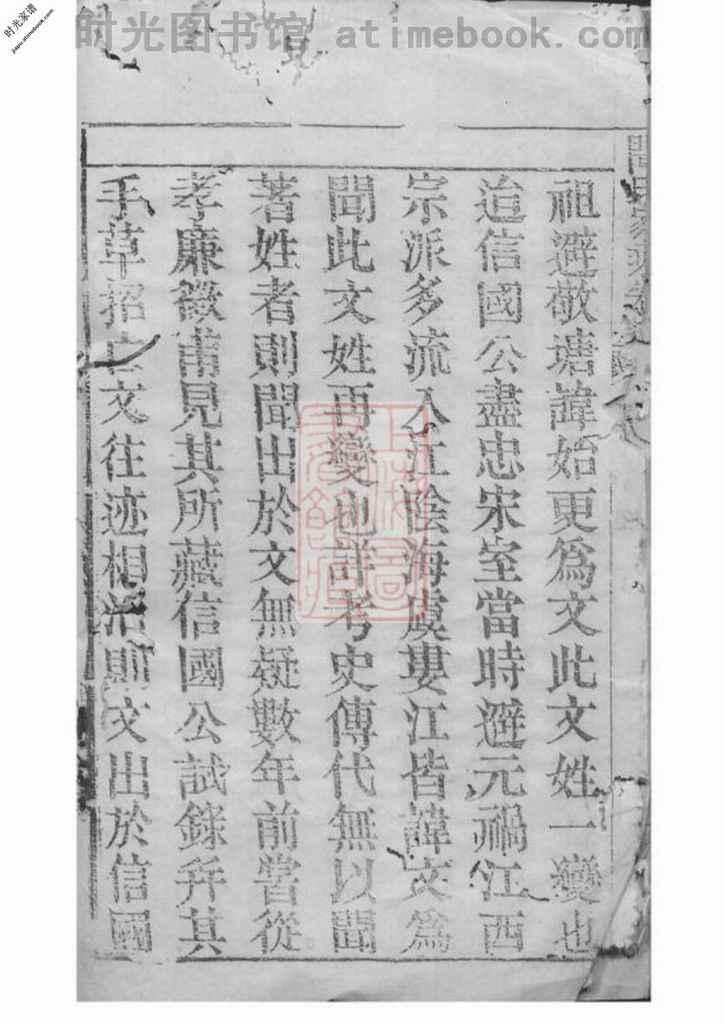 时光图书馆 atimebook.com
时光家谱
jiapu.atimebook.com
祖避敬瑭諱始更爲文此文姓一變也
迨信國公盡忠宋室當時避元禍江西
宗派多流入江陰海虞婁江皆諱文爲
聞此文姓再變也詳考史傳代無以聞
著姓者則聞出於文無疑數年前嘗從
孝廉徵甫見其所藏信國公試錄并其
手草招文往迹相沿則文出於信國